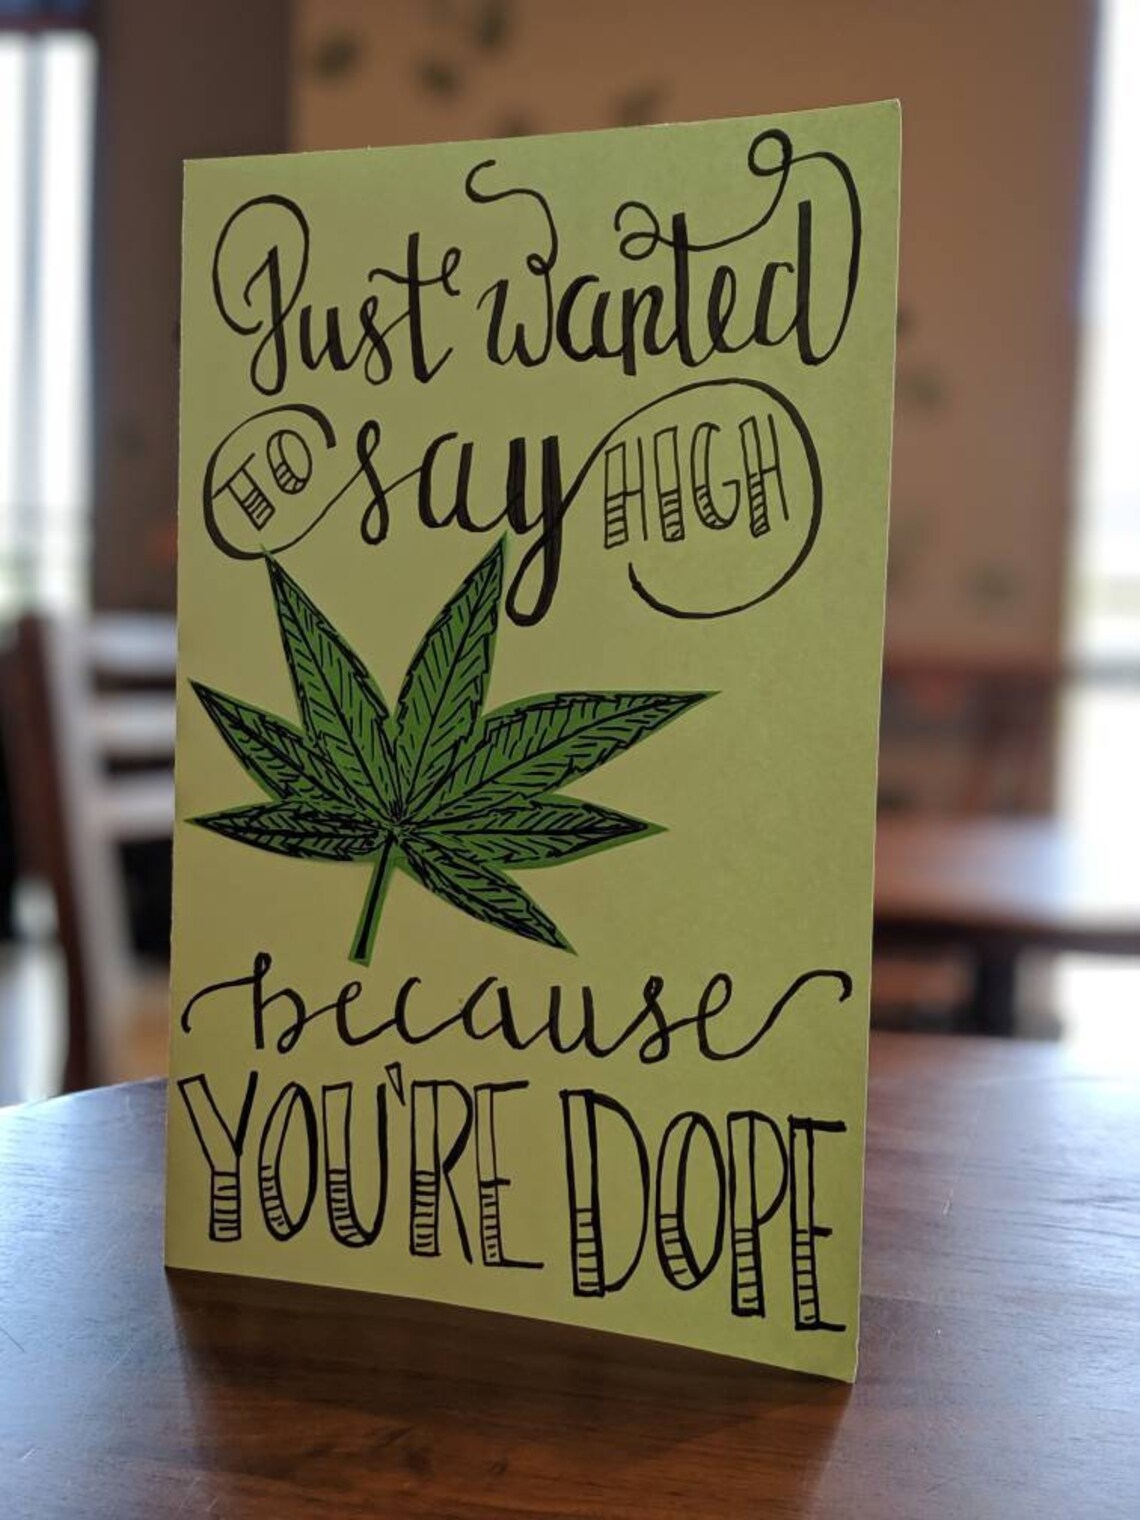 Just wanted
TO say HIGH
because
YOU'RE DOPE